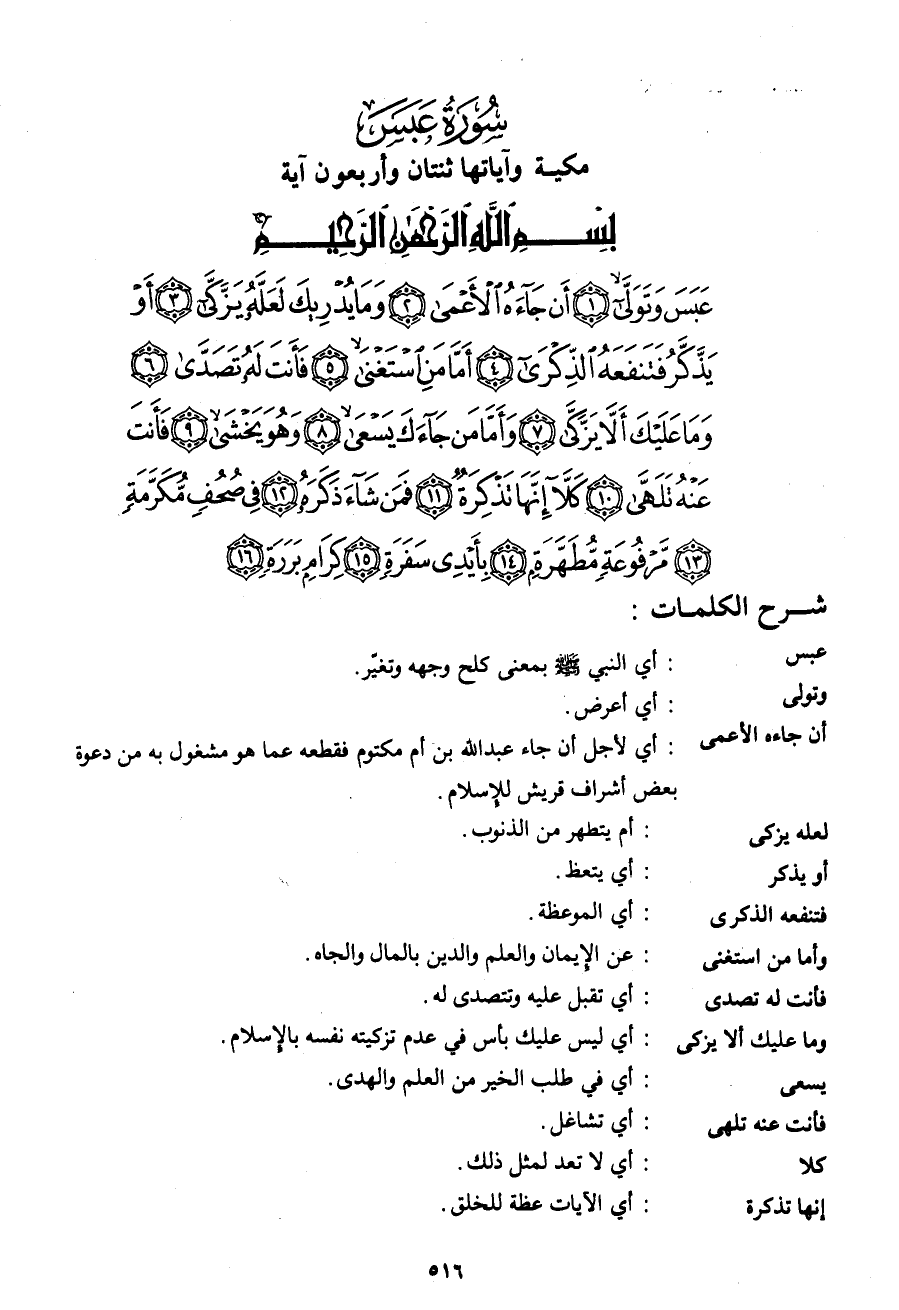 سُورَةُ عَبَسَ
مكية وآياتها ثنتان وأربعون آية
بِسْمِ ٱللَّهِ ٱلرَّحْمَٰنِ ٱلرَّحِيمِ
عَبَسَ وَتَوَلَّىٰٓ ﴿١﴾ أَن جَآءَهُ ٱلْأَعْمَىٰ ﴿٢﴾ وَمَا يُدْرِيكَ لَعَلَّهُۥ يَزَّكَّىٰٓ ﴿٣﴾ أَوْ
يَذَّكَّرُ فَتَنفَعَهُ ٱلذِّكْرَىٰٓ ﴿٤﴾ أَمَّا مَنِ ٱسْتَغْنَىٰ ﴿٥﴾ فَأَنتَ لَهُۥ تَصَدَّىٰ ﴿٦﴾
وَمَا عَلَيْكَ أَلَّا يَزَّكَّىٰ ﴿٧﴾ وَأَمَّا مَن جَآءَكَ يَسْعَىٰ ﴿٨﴾ وَهُوَ يَخْشَىٰ ﴿٩﴾ فَأَنتَ
عَنْهُ تَلَهَّىٰ ﴿١٠﴾ كَلَّآ إِنَّهَا تَذْكِرَةٌ ﴿١١﴾ فَمَن شَآءَ ذَكَرَهُۥ ﴿١٢﴾ فِى صُحُفٍ مُّكَرَّمَةٍ
﴿١٣﴾ مَّرْفُوعَةٍ مُّطَهَّرَةٍۭ ﴿١٤﴾ بِأَيْدِى سَفَرَةٍ ﴿١٥﴾ كِرَامٍۭ بَرَرَةٍ ﴿١٦﴾
شـرح الكلمـات :
عبس : أي النبي ﷺ بمعنى كلح وجهه وتغيّر.
وتولى : أي أعرض.
أن جاءه الأعمى : أي لأجل أن جاء عبدالله بن أم مكتوم فقطعه عما هو مشغول به من دعوة
بعض أشراف قريش للإسلام.
لعله يزكى : أم يتطهر من الذنوب.
أو يذكر : أي يتعظ.
فتنفعه الذكرى : أي الموعظة.
وأما من استغنى : عن الإيمان والعلم والدين بالمال والجاه.
فأنت له تصدى : أي تقبل عليه وتتصدى له.
وما عليك ألا يزكى : أي ليس عليك بأس في عدم تزكيته نفسه بالإسلام.
يسعى : أي في طلب الخير من العلم والهدى.
فأنت عنه تلهى : أي تشاغل.
كلا : أي لا تعد لمثل ذلك.
إنها تذكرة : أي الآيات عظة للخلق.
٥١٦